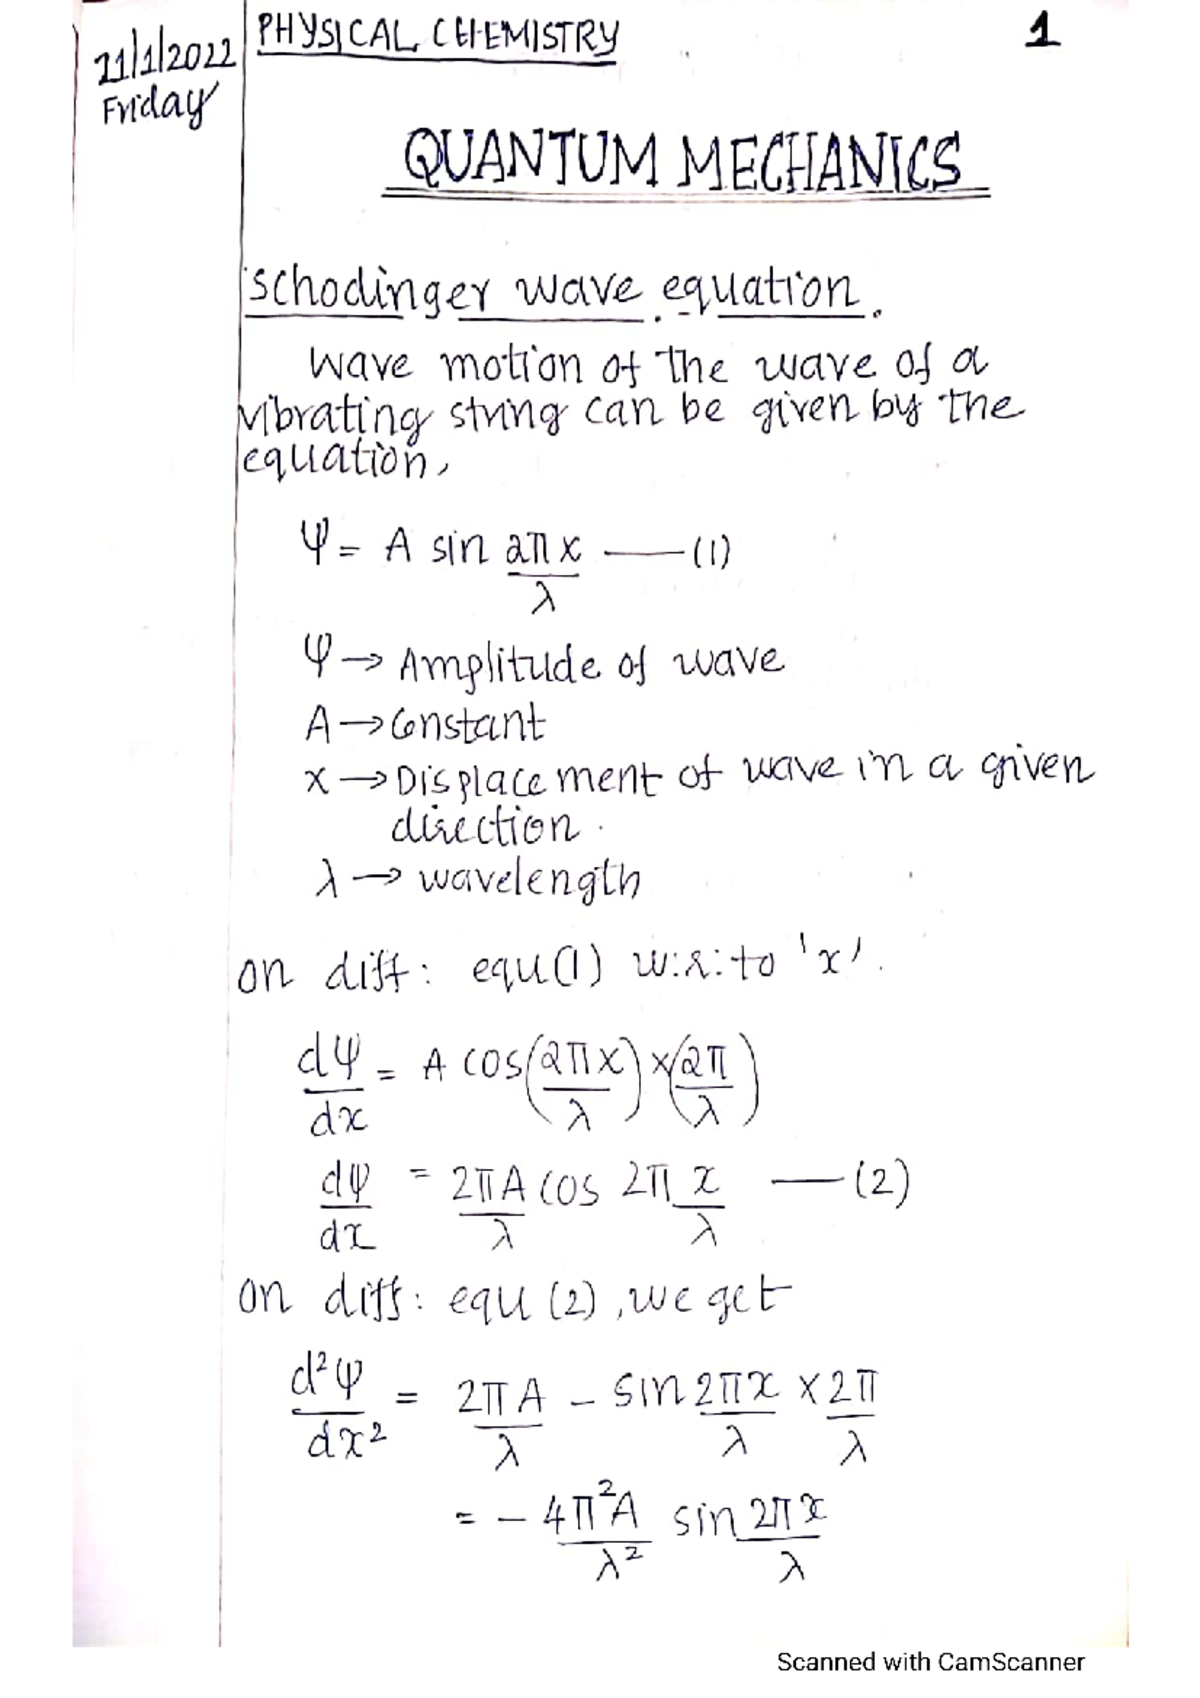 21/1/2022
Friday
PHYSICAL CHEMISTRY
1
QUANTUM MECHANICS
Schodinger wave equation.
Wave motion of the wave of a
vibrating string can be given by the
equation,
Ψ = A sin 2πx/λ —— (1)
Ψ → Amplitude of wave
A → Constant
x → Displacement of wave in a given
direction.
λ → wavelength
on diff: equ(1) w:r:to 'x'.
dΨ/dx = A cos(2πx/λ) × (2π/λ)
dΨ/dx = 2πA/λ cos 2π x/λ —— (2)
on diff: equ (2), we get
d²Ψ/dx² = 2πA/λ - sin 2πx/λ × 2π/λ
= - 4π²A/λ² sin 2πx/λ
Scanned with CamScanner